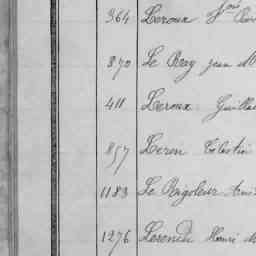 364 Leroux
870 Le Bray Jean M
411 Leroux Guilla
857 Leron Célestin
1183 Le Rigoleur
1276 Henri M